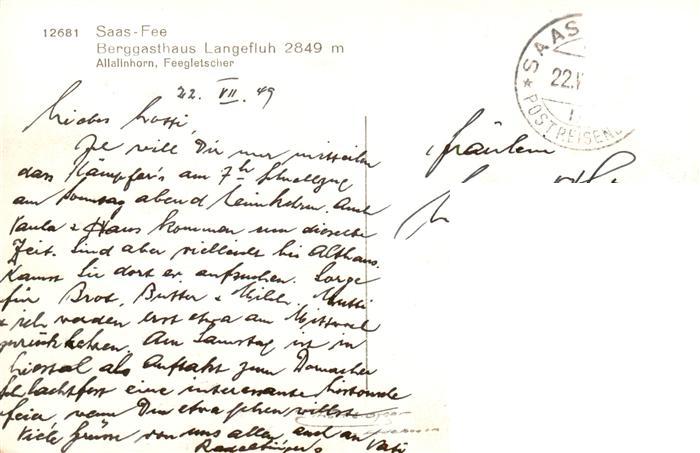 12681 Saas-Fee
Berggasthaus Langefluh 2849 m
Allalinhorn, Feegletscher
22. VII. 49
SAAS
22.V
POSTREISEN
Fräulein
Liebes
Ich will Dir nur mitteilen
dass Kämpfer's am 7h Schnellzug
am Sonntag abend heimkehren. Auch
Paula & Hans kommen um dieselbe
Zeit. Sind aber vielleicht bei Althaus.
Kannst Sie dort ev. aufsuchen. Sorge
für Brot, Butter & Milch. Mutti
& ich werden erst etwa am Mittwoch
zurückkehren. Am Samstag ist in
Liestal als Auftakt zum Dornacher
Schlachtfest eine interessante
feier wenn Du etwa gehen willst
Viele Grüsse von uns allen auch an Vati